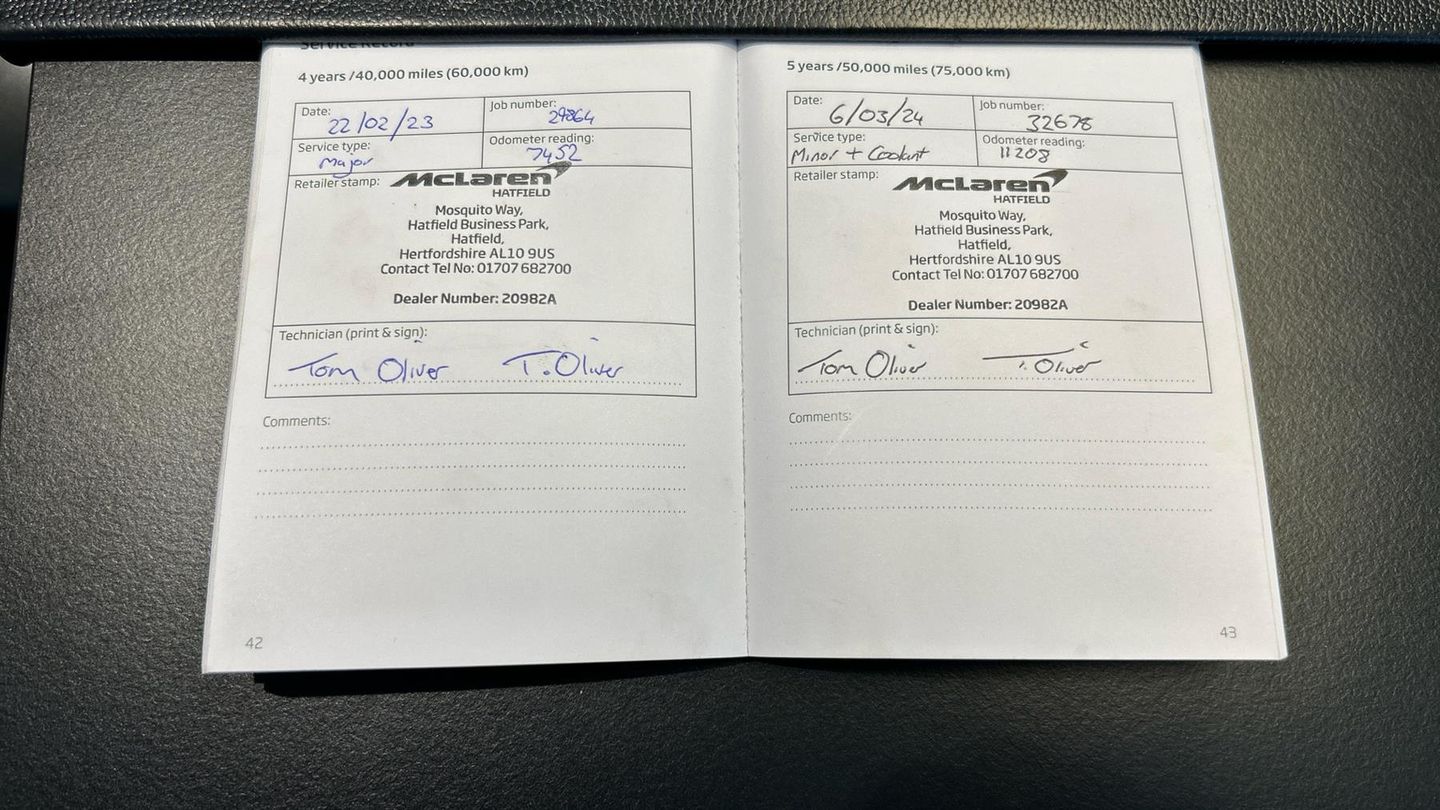 Service Record
4 years /40,000 miles (60,000 km)
Date: 22/02/23
Job number: 29864
Service type: Major
Odometer reading: 7452
Retailer stamp: McLaren
HATFIELD
Mosquito Way,
Hatfield Business Park,
Hatfield,
Hertfordshire AL10 9US
Contact Tel No: 01707 682700
Dealer Number: 20982A
Technician (print & sign):
Tom Oliver T. Oliver
Comments:
42
5 years /50,000 miles (75,000 km)
Date: 6/03/24
Job number: 32678
Service type: Minor + Coolant
Odometer reading: 11208
Retailer stamp: McLaren
HATFIELD
Mosquito Way,
Hatfield Business Park,
Hatfield,
Hertfordshire AL10 9US
Contact Tel No: 01707 682700
Dealer Number: 20982A
Technician (print & sign):
Tom Oliver T. Oliver
Comments:
43